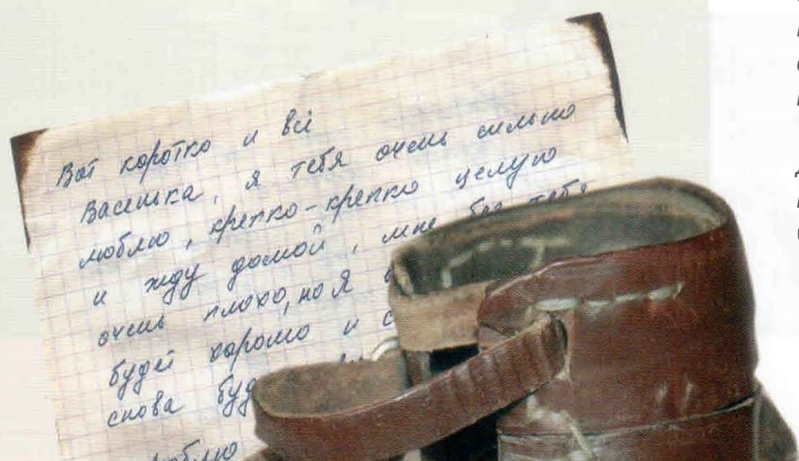 Вот коротко и всё
Васенька, я тебя очень сильно
люблю, крепко-крепко целую
и жду домой, мне без тебя
очень плохо, но я
будет хорошо и
снова
люблю